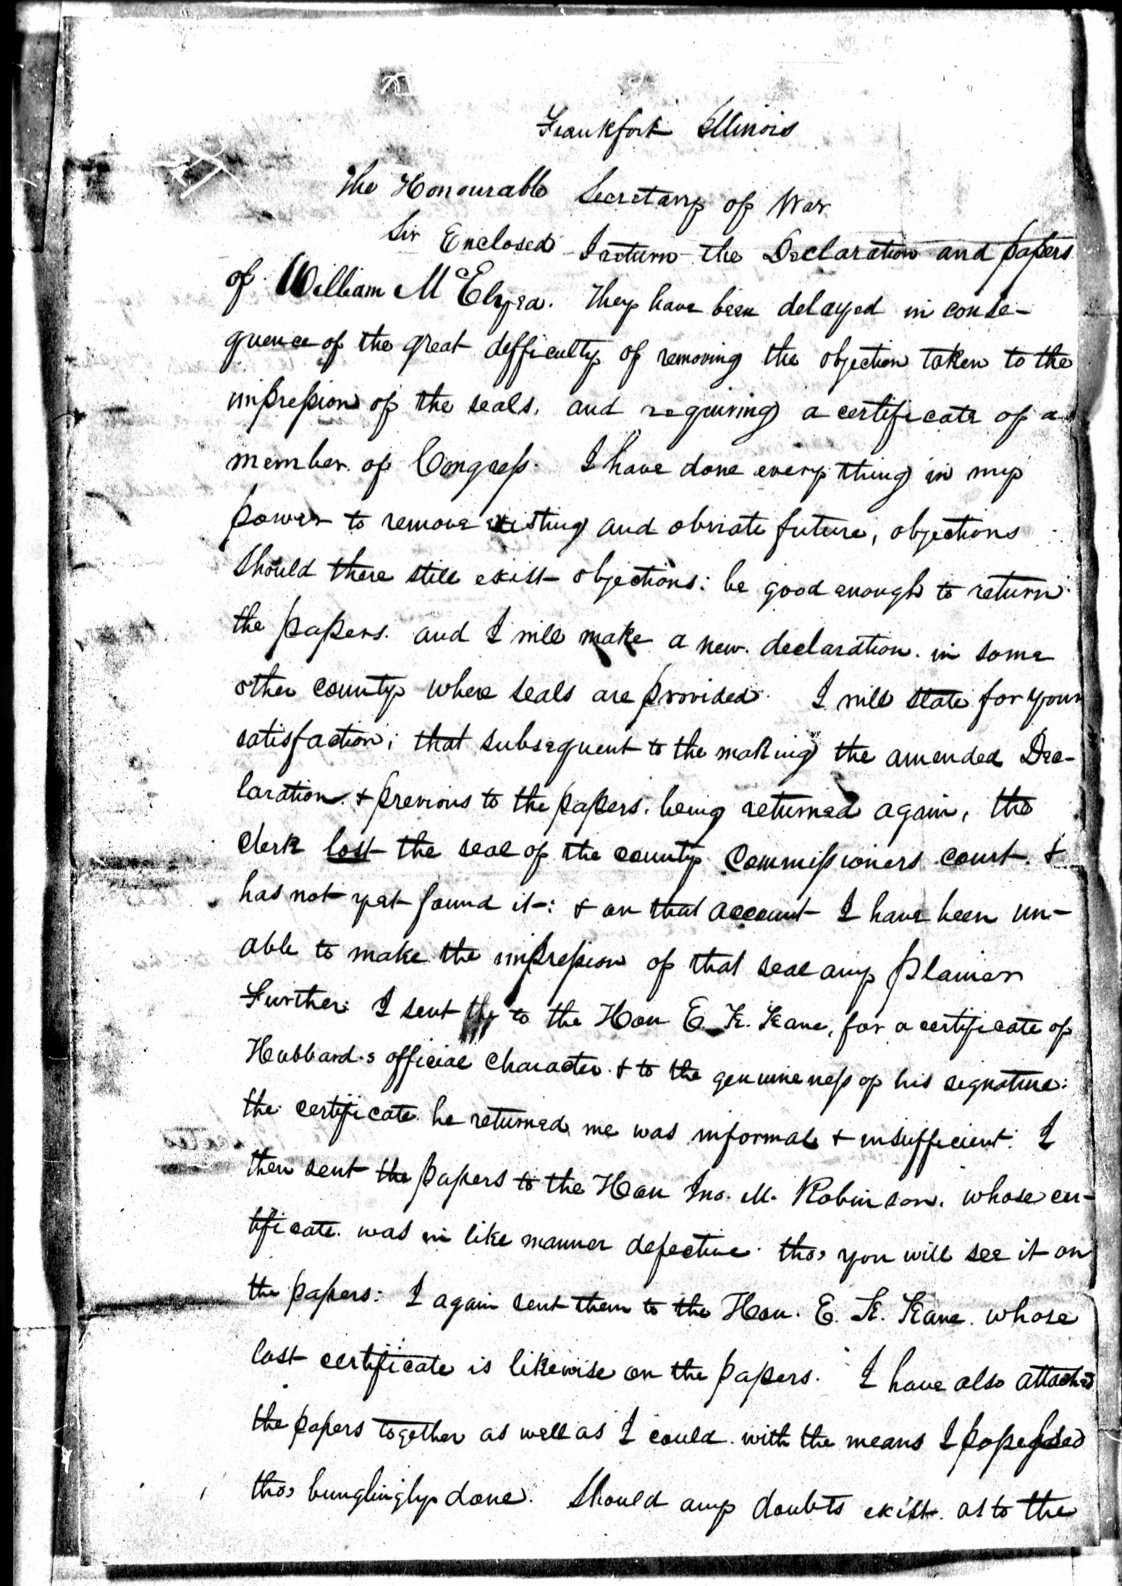 Frankfort Illinois
The Honourable Secretary of War
Sir Enclosed I return the Declaration and papers
of William McElyea. They have been delayed in conse-
quence of the great difficulty of removing the objection taken to the
impression of the seals, and requiring a certificate of a
member of Congress. I have done every thing in my
power to remove existing and obviate future, objections
Should there still exist objections: be good enough to return
the papers. and I will make a new declaration in some
other county where seals are provided. I will state for your
satisfaction; that subsequent to the making the amended Dec-
laration. & previous to the papers. being returned again, the
clerk lost the seal of the county Commissioners court. &
has not yet found it: & on that account I have been un-
able to make the impression of that seal any plainer
Further I sent to the Hon E. K. Kane, for a certificate of
Hubbard's official character & to the genuineness of his signature:
the certificate he returned me was informal & insufficient. I
then sent the papers to the Hon Jno. M. Robinson. whose cer-
tificate was in like manner defective tho' you will see it on
the papers: I again sent them to the Hon. E. K. Kane whose
last certificate is likewise on the papers. I have also attached
the papers together as well as I could with the means I possessed
tho' bunglingly done. Should any doubts exist as to the